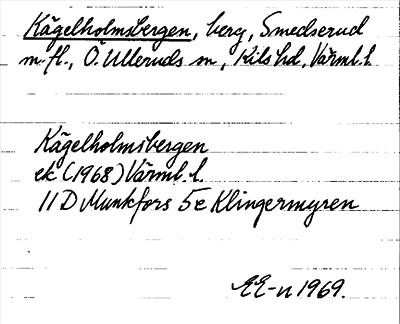 Kägelholmsbergen, berg, Smedserud
m.fl., Ö. Ulleruds sn, Kils hd, Värml. l.
Kägelholmsbergen
ek (1968) Värml. l.
11 D Munkfors 5e Klingermyren
EE-n 1969.